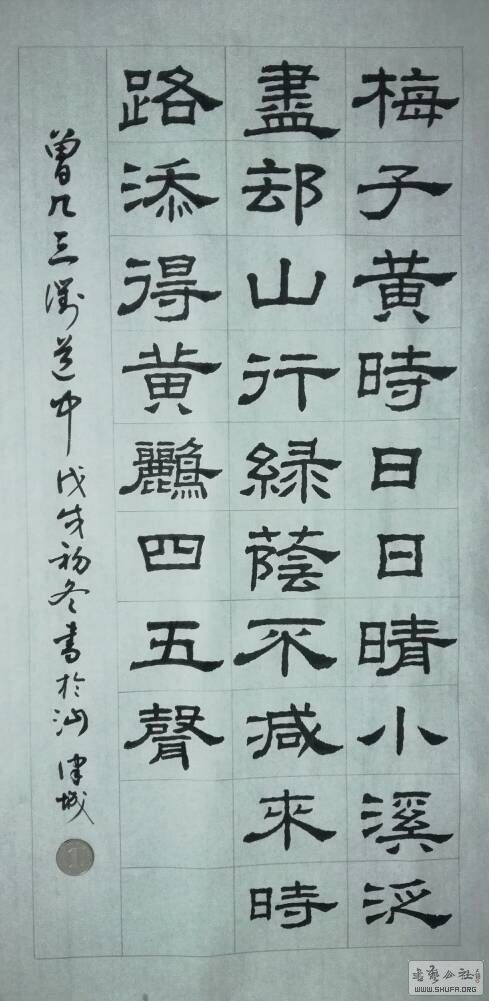 梅子黃時日日晴小溪泛
盡却山行緑蔭不減來時
路添得黄鸝四五聲
曾几三衢道中戊戌初冬書於汕津城
书艺公社
WWW.SHUFA.ORG